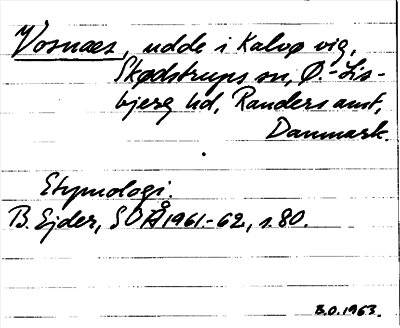 Vosnæs, udde i Kalvø vig,
Skødstrups sn, Ø.-Lis-
bjerg hd, Randers amt,
Danmark.
Etymologi.
B. Ejder, SOÅ 1961-62, s. 80.
B.O. 1963.